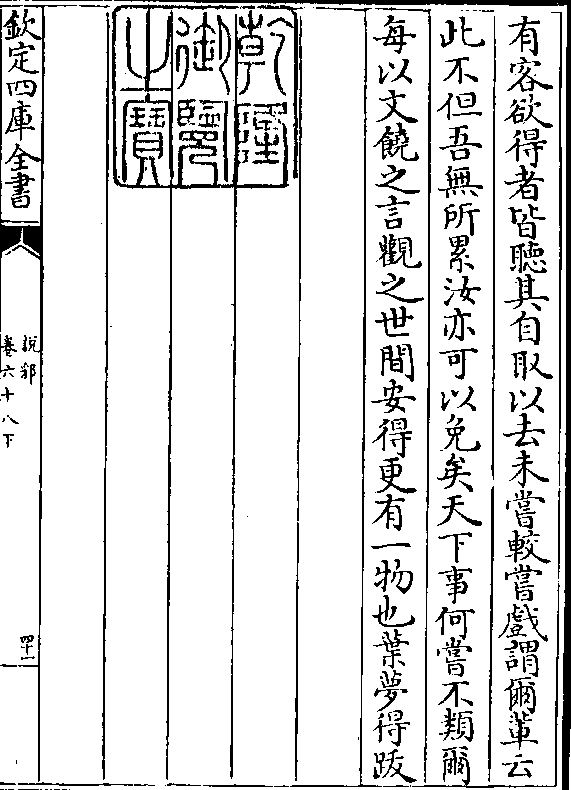 有客欲得者皆聽其自取以去未嘗較嘗戲謂爾輩云
此不但吾無所累汝亦可以免矣天下事何嘗不類爾
每以文饒之言觀之世間安得更有一物也葉夢得跋
乾隆
御覽
之寶
欽定四庫全書
說郛
卷六十八下
四十一